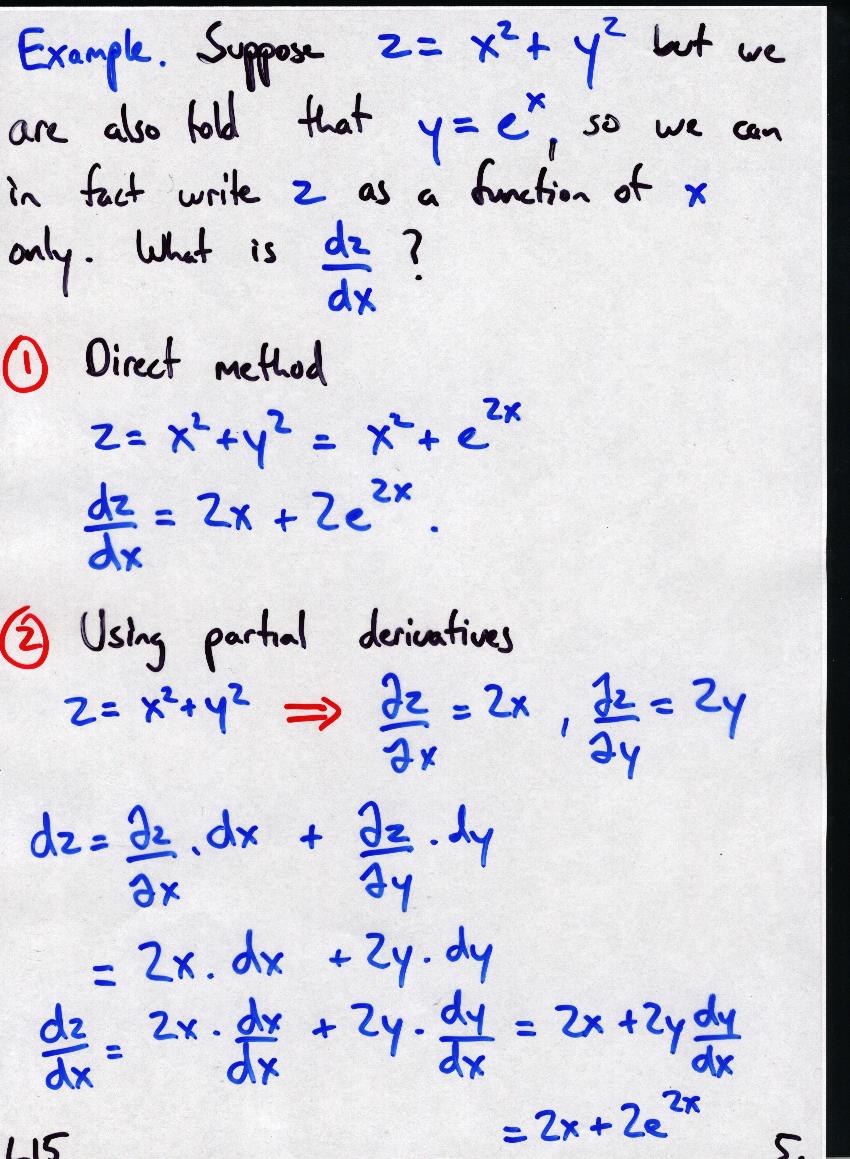 Example. Suppose z = x² + y² but we
are also told that y = eˣ, so we can
in fact write z as a function of x
only. What is dz/dx ?
① Direct method
z = x² + y² = x² + e²ˣ
dz/dx = 2x + 2e²ˣ.
② Using partial derivatives
z = x² + y² ⇒ ∂z/∂x = 2x , ∂z/∂y = 2y
dz = ∂z/∂x . dx + ∂z/∂y . dy
= 2x . dx + 2y . dy
dz/dx = 2x . dx/dx + 2y . dy/dx = 2x + 2y dy/dx
= 2x + 2e²ˣ
L15 5.